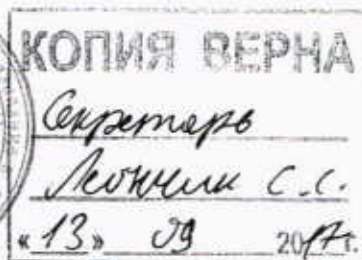 КОПИЯ ВЕРНА
Секретарь
С.С.
«13» 09 2017г.